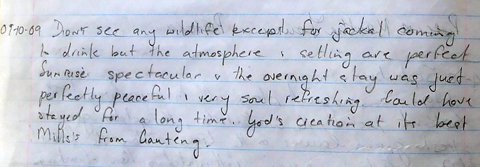 07-10-09 Dont see any wildlife except for jackal coming
to drink but the atmosphere & setting are perfect
Sunrise spectacular & the overnight stay was just
perfectly peaceful & very soul refreshing. Could have
stayed for a long time. God's creation at its best
Mills's from Gauteng.